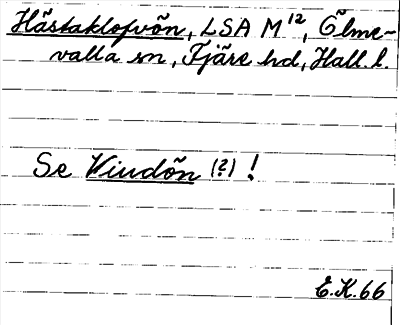 Hästaklofvön, LSA M¹², Ölme-
valla sn, Fjäre hd, Hall. l.
Se Viudön (?) !
E.K.66